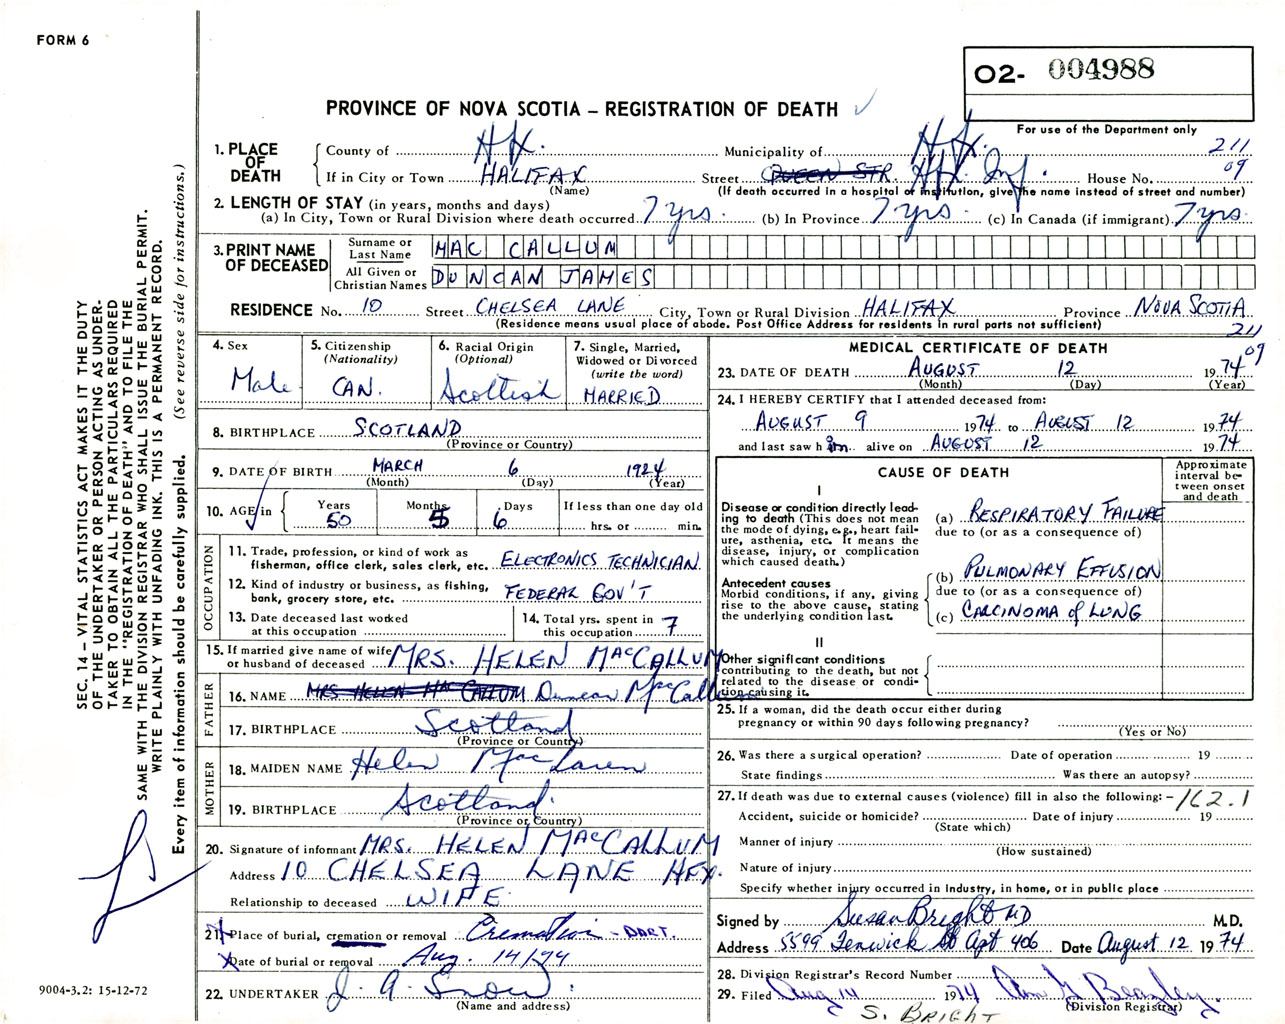 FORM 6
O2- 004988
PROVINCE OF NOVA SCOTIA – REGISTRATION OF DEATH
For use of the Department only
211
09
1. PLACE OF DEATH
County of HX. Municipality of HX.
If in City or Town HALIFAX Street QUEEN STR. HX Inf. House No.
(Name) (If death occurred in a hospital or institution, give the name instead of street and number)
2. LENGTH OF STAY (in years, months and days)
(a) In City, Town or Rural Division where death occurred 7 yrs. (b) In Province 7 yrs. (c) In Canada (if immigrant) 7 yrs.
3. PRINT NAME OF DECEASED
Surname or Last Name MAC CALLUM
All Given or Christian Names DUNCAN JAMES
RESIDENCE No. 10 Street CHELSEA LANE City, Town or Rural Division HALIFAX Province NOVA SCOTIA
(Residence means usual place of abode. Post Office Address for residents in rural parts not sufficient)
211
09
4. Sex Male
5. Citizenship (Nationality) CAN.
6. Racial Origin (Optional) Scottish
7. Single, Married, Widowed or Divorced (write the word) MARRIED
8. BIRTHPLACE SCOTLAND
(Province or Country)
9. DATE OF BIRTH MARCH 6 1924
(Month) (Day) (Year)
10. AGE in Years Months Days If less than one day old
50 5 6 hrs. or min.
OCCUPATION
11. Trade, profession, or kind of work as fisherman, office clerk, sales clerk, etc. ELECTRONICS TECHNICIAN
12. Kind of industry or business, as fishing, bank, grocery store, etc. FEDERAL GOV'T
13. Date deceased last worked at this occupation
14. Total yrs. spent in this occupation 7
15. If married give name of wife or husband of deceased MRS. HELEN MACCALLUM
FATHER
16. NAME MRS HELEN MACCALLUM Duncan MacCallum
17. BIRTHPLACE Scotland
(Province or Country)
MOTHER
18. MAIDEN NAME Helen MacLaren
19. BIRTHPLACE Scotland.
(Province or Country)
20. Signature of informant MRS. HELEN MACCALLUM
Address 10 CHELSEA LANE HFX.
Relationship to deceased WIFE
21. Place of burial, cremation or removal Cremation - DART.
Date of burial or removal Aug. 14/74
22. UNDERTAKER J. A. Snow.
(Name and address)
MEDICAL CERTIFICATE OF DEATH
23. DATE OF DEATH AUGUST 12 1974
(Month) (Day) (Year)
24. I HEREBY CERTIFY that I attended deceased from:
AUGUST 9 1974 to AUGUST 12 1974
and last saw him alive on AUGUST 12 1974
CAUSE OF DEATH
Approximate interval between onset and death
I
Disease or condition directly leading to death (This does not mean the mode of dying, e.g., heart failure, asthenia, etc. It means the disease, injury, or complication which caused death.)
(a) RESPIRATORY FAILURE
due to (or as a consequence of)
Antecedent causes
Morbid conditions, if any, giving rise to the above cause, stating the underlying condition last.
(b) PULMONARY EFFUSION
due to (or as a consequence of)
(c) CARCINOMA of LUNG
II
Other significant conditions contributing to the death, but not related to the disease or condition causing it.
25. If a woman, did the death occur either during pregnancy or within 90 days following pregnancy?
(Yes or No)
26. Was there a surgical operation? Date of operation 19
State findings Was there an autopsy?
27. If death was due to external causes (violence) fill in also the following: - 162.1
Accident, suicide or homicide? Date of injury 19
(State which)
Manner of injury
(How sustained)
Nature of injury
Specify whether injury occurred in industry, in home, or in public place
Signed by Susan Bright MD M.D.
Address 5599 Fenwick St Apt 406 Date August 12 1974
28. Division Registrar's Record Number
29. Filed Aug 14 1974 Ann G Beazley
(Division Registrar)
S. BRIGHT
SEC. 14 – VITAL STATISTICS ACT MAKES IT THE DUTY
OF THE UNDERTAKER OR PERSON ACTING AS UNDER-
TAKER TO OBTAIN ALL THE PARTICULARS REQUIRED
IN THE "REGISTRATION OF DEATH" AND TO FILE THE
SAME WITH THE DIVISION REGISTRAR WHO SHALL ISSUE THE BURIAL PERMIT.
WRITE PLAINLY WITH UNFADING INK. THIS IS A PERMANENT RECORD.
Every item of information should be carefully supplied. (See reverse side for instructions.)
9004-3.2: 15-12-72